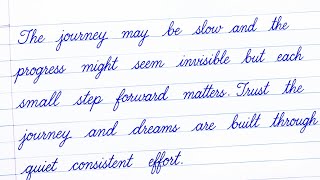 The journey may be slow and the
progress might seem invisible but each
small step forward matters. Trust the
journey and dreams are built through
quiet consistent effort.